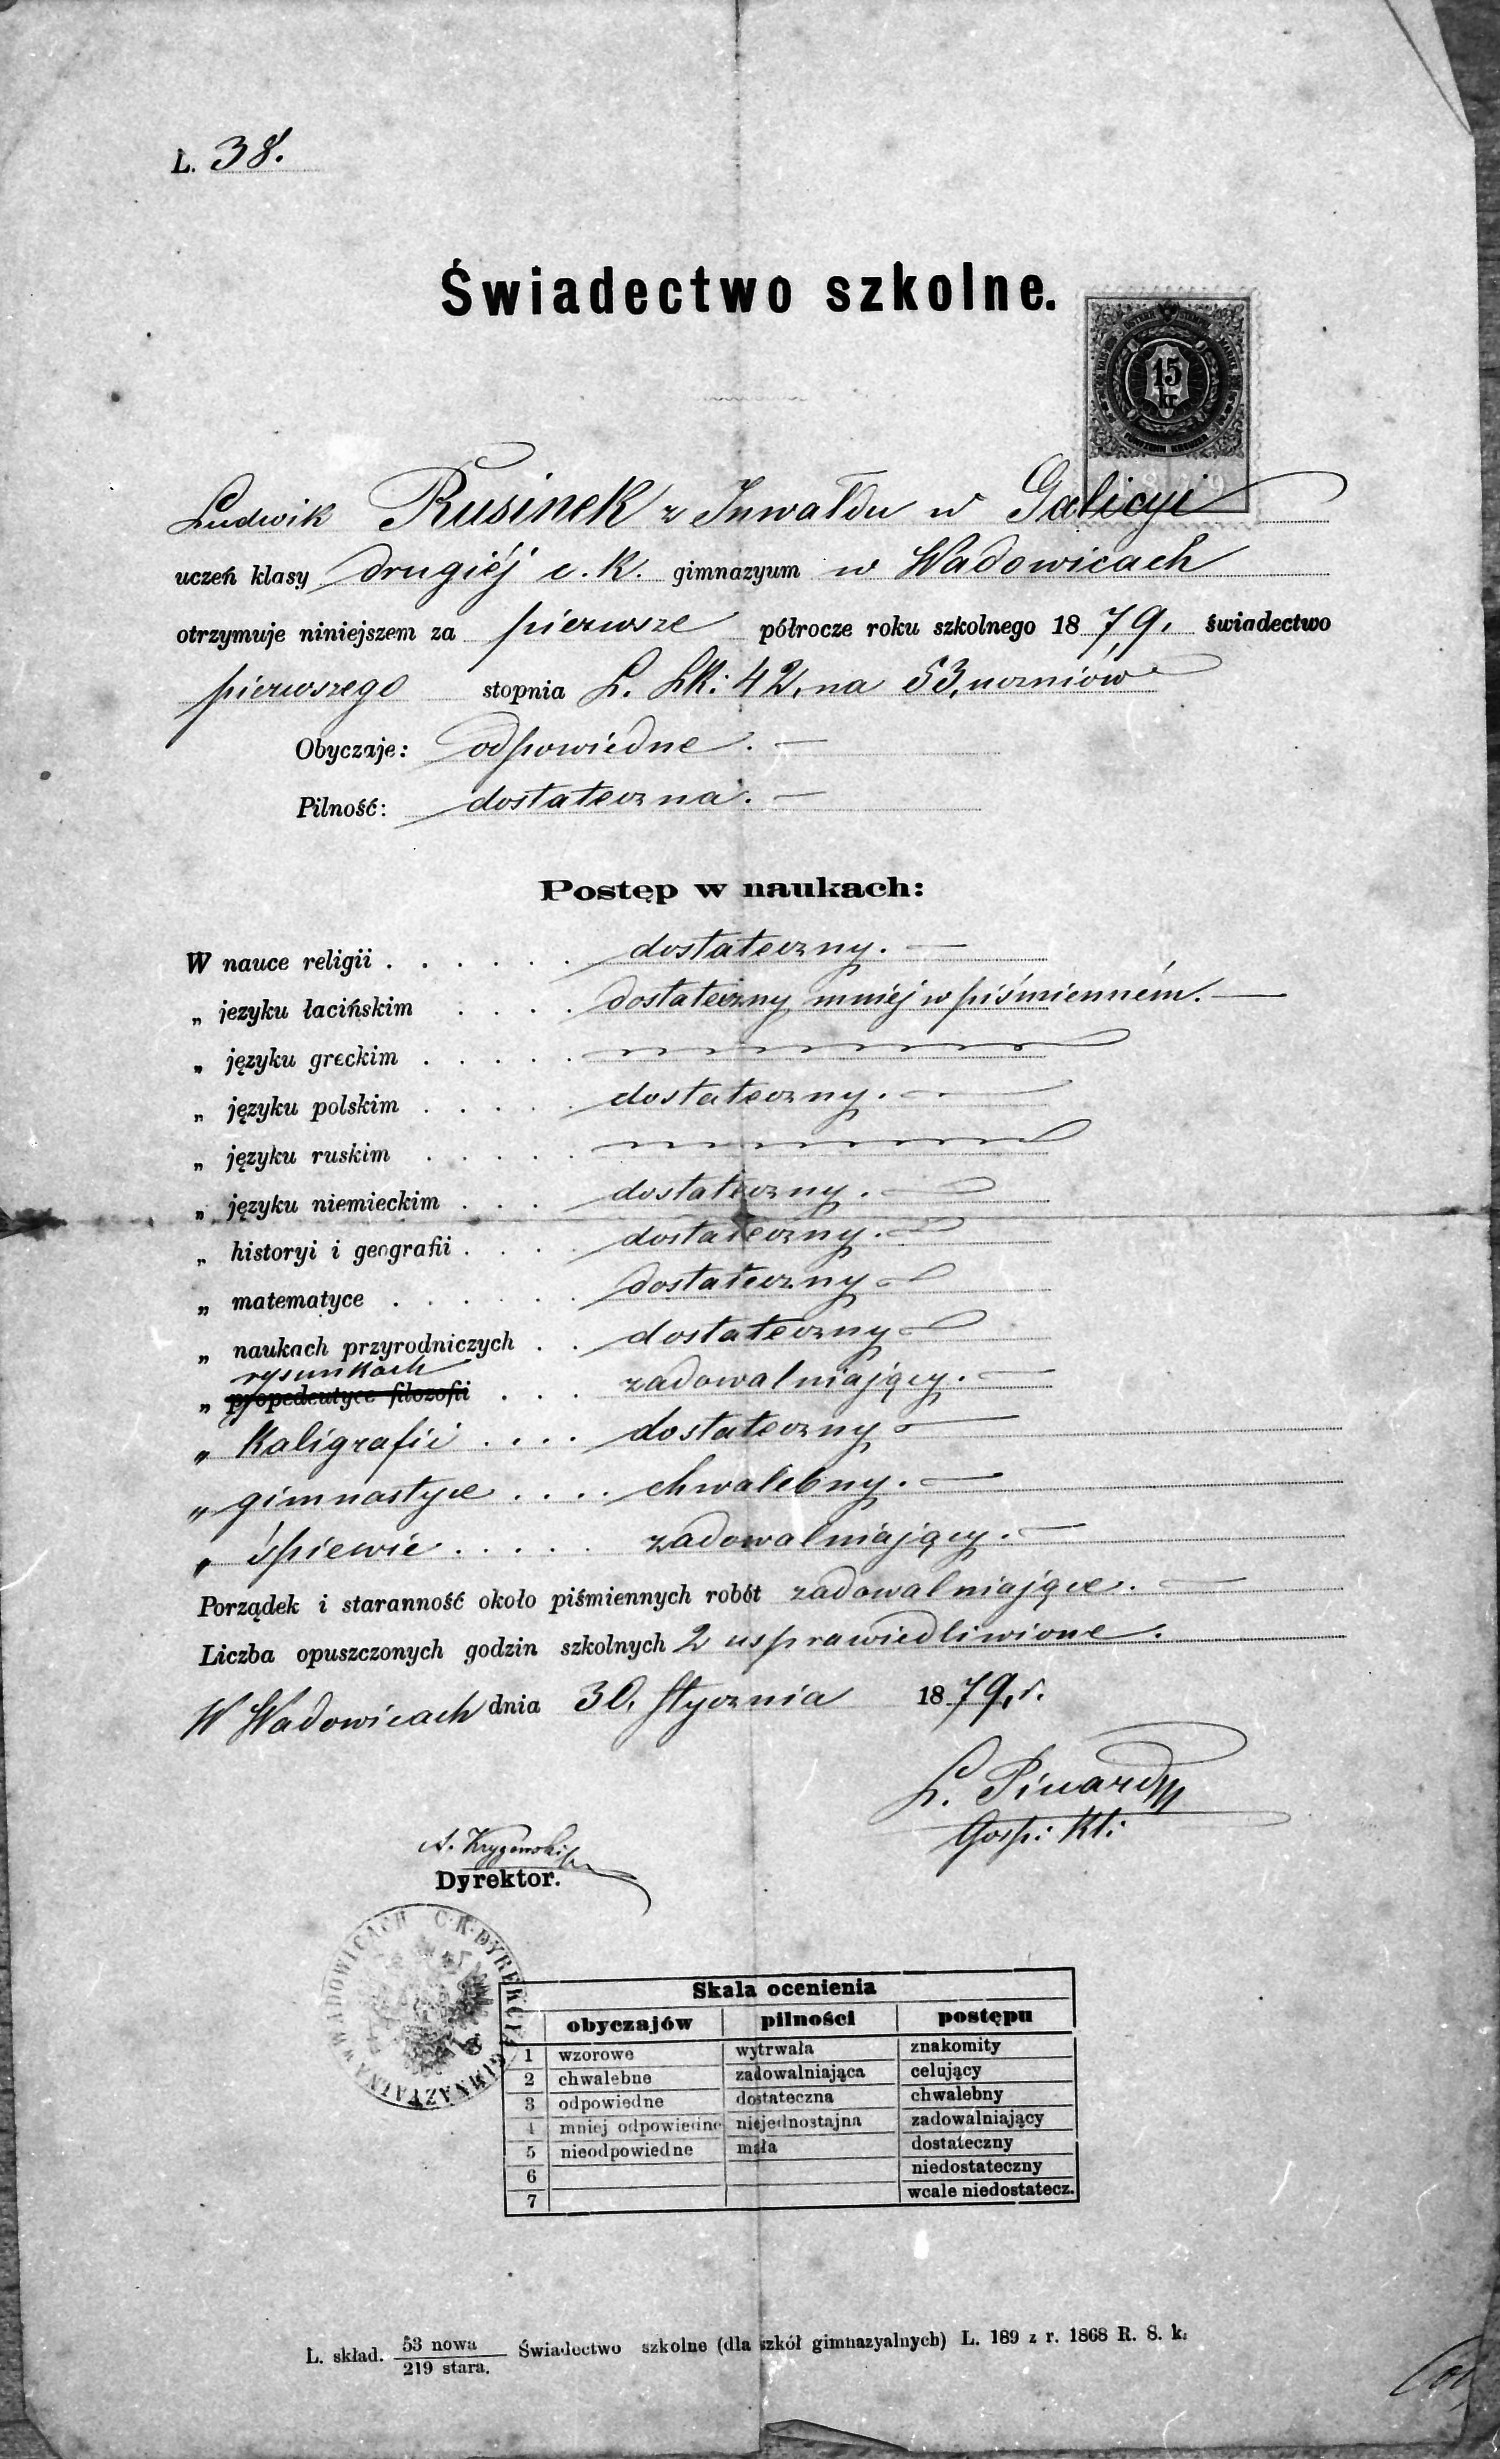 L. 38.
Świadectwo szkolne.
15
kr
1879
Ludwik Rusinek z Inwałdu w Galicyi
uczeń klasy drugiéj c. k. gimnazyum w Wadowicach
otrzymuje niniejszem za pierwsze półrocze roku szkolnego 1879, świadectwo
pierwszego stopnia L. Lk: 42, na 53, uczniów
Obyczaje: odpowiedne. —
Pilność: dostateczna. —
Postęp w naukach:
W nauce religii . . . . . . dostateczny. —
„ jezyku łacińskim . . . . dostateczny, mniej w piśmienném. —
„ języku greckim . . . . .
„ języku polskim . . . . . dostateczny. —
„ języku ruskim . . . . .
„ języku niemieckim . . . dostateczny. —
„ historyi i geografii . . . . dostateczny. —
„ matematyce . . . . . . dostateczny —
„ naukach przyrodniczych . . dostateczny —
rysunkach
„ propedeutyce filozofii . . . zadowalniający. —
„ Kaligrafii . . . . dostateczny —
„ gimnastyce . . . . chwalebny. —
„ śpiewie . . . . . zadowalniający. —
Porządek i staranność około piśmiennych robót zadowalniające. —
Liczba opuszczonych godzin szkolnych 2 usprawiedliwione.
W Wadowicach dnia 30. Stycznia 1879, r.
Gosp: Kl:
Dyrektor.
C. K. DYREKCYA GIMNAZYALNA W WADOWICACH
Skala ocenienia
obyczajów pilności postępu
1 wzorowe wytrwała znakomity
2 chwalebne zadowalniająca celujący
3 odpowiedne dostateczna chwalebny
4 mniej odpowiedne niejednostajna zadowalniający
5 nieodpowiedne mała dostateczny
6 niedostateczny
7 wcale niedostatecz.
L. skład. 53 nowa / 219 stara. Świadectwo szkolne (dla szkół gimnazyalnych) L. 189 z r. 1868 R. S. k.